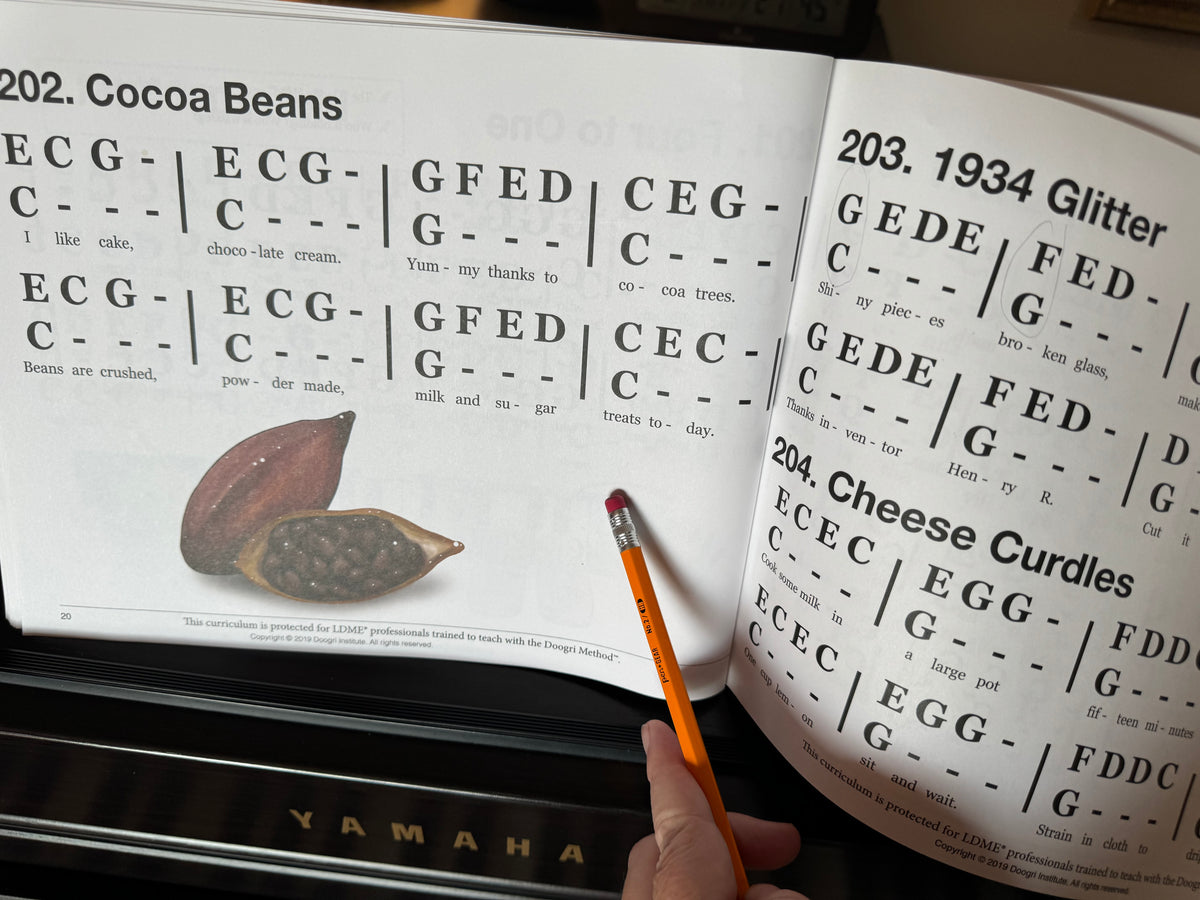 202. Cocoa Beans
E C G - | E C G - | G F E D | C E G - |
C - - - | C - - - | G - - - | C - - - |
I like cake, choco - late cream. Yum - my thanks to co - coa trees.
E C G - | E C G - | G F E D | C E C - |
C - - - | C - - - | G - - - | C - - - |
Beans are crushed, pow - der made, milk and su - gar treats to - day.
20
This curriculum is protected for LDME® professionals trained to teach with the Doogri Method™.
Copyright © 2019 Doogri Institute. All rights reserved.
203. 1934 Glitter
G E D E | F E D - |
C - - - | G - - - |
Shi - ny piec - es bro - ken glass, mak
G E D E | F E D - | D
C - - - | G - - - | G -
Thanks in - ven - tor Hen - ry R. Cut it
204. Cheese Curdles
E C E C | E G G - | F D D
C - - - | G - - - | G - - -
Cook some milk in a large pot fif - teen mi - nutes
E C E C | E G G - | F D D C |
C - - - | G - - - | G - - - |
One cup lem - on sit and wait. Strain in cloth to
This curriculum is protected for LDME® professionals trained to teach with the Doogri
Copyright © 2019 Doogri Institute. All rights reserved.
No. 2 / HB
YAMAHA